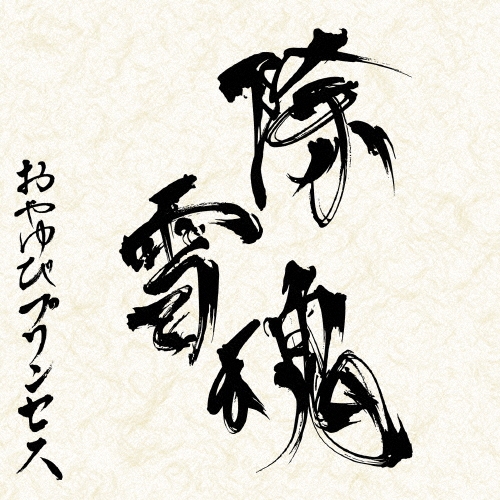 除雪魂
おやゆびプリンセス